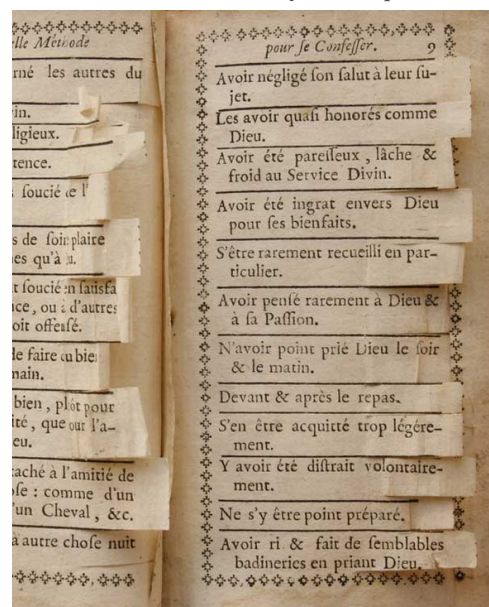 lle Méthode
rné les autres du
in.
ligieux.
tence.
ſoucié de l'
s de ſoi plaire
es qu'à
t ſoucié ſatisfa
ce, ou d'autres
oit offenſé.
le faire bie
main.
bien, pour
ité, que l'a-
eu.
taché à l'amitié de
oſe : comme d'un
un Cheval, &c.
à autre choſe nuit
pour ſe Confeſſer. 9
Avoir négligé ſon ſalut à leur ſu-
jet.
Les avoir quaſi honorés comme
Dieu.
Avoir été pareſſeux, lâche &
froid au Service Divin.
Avoir été ingrat envers Dieu
pour ſes bienfaits.
S'être rarement recueilli en par-
ticulier.
Avoir penſé rarement à Dieu &
à ſa Paſſion.
N'avoir point prié Dieu le ſoir
& le matin.
Devant & après le repas.
S'en être acquitté trop légére-
ment.
Y avoir été diſtrait volontaire-
ment.
Ne s'y être point préparé.
Avoir ri & fait de ſemblables
badineries en priant Dieu.